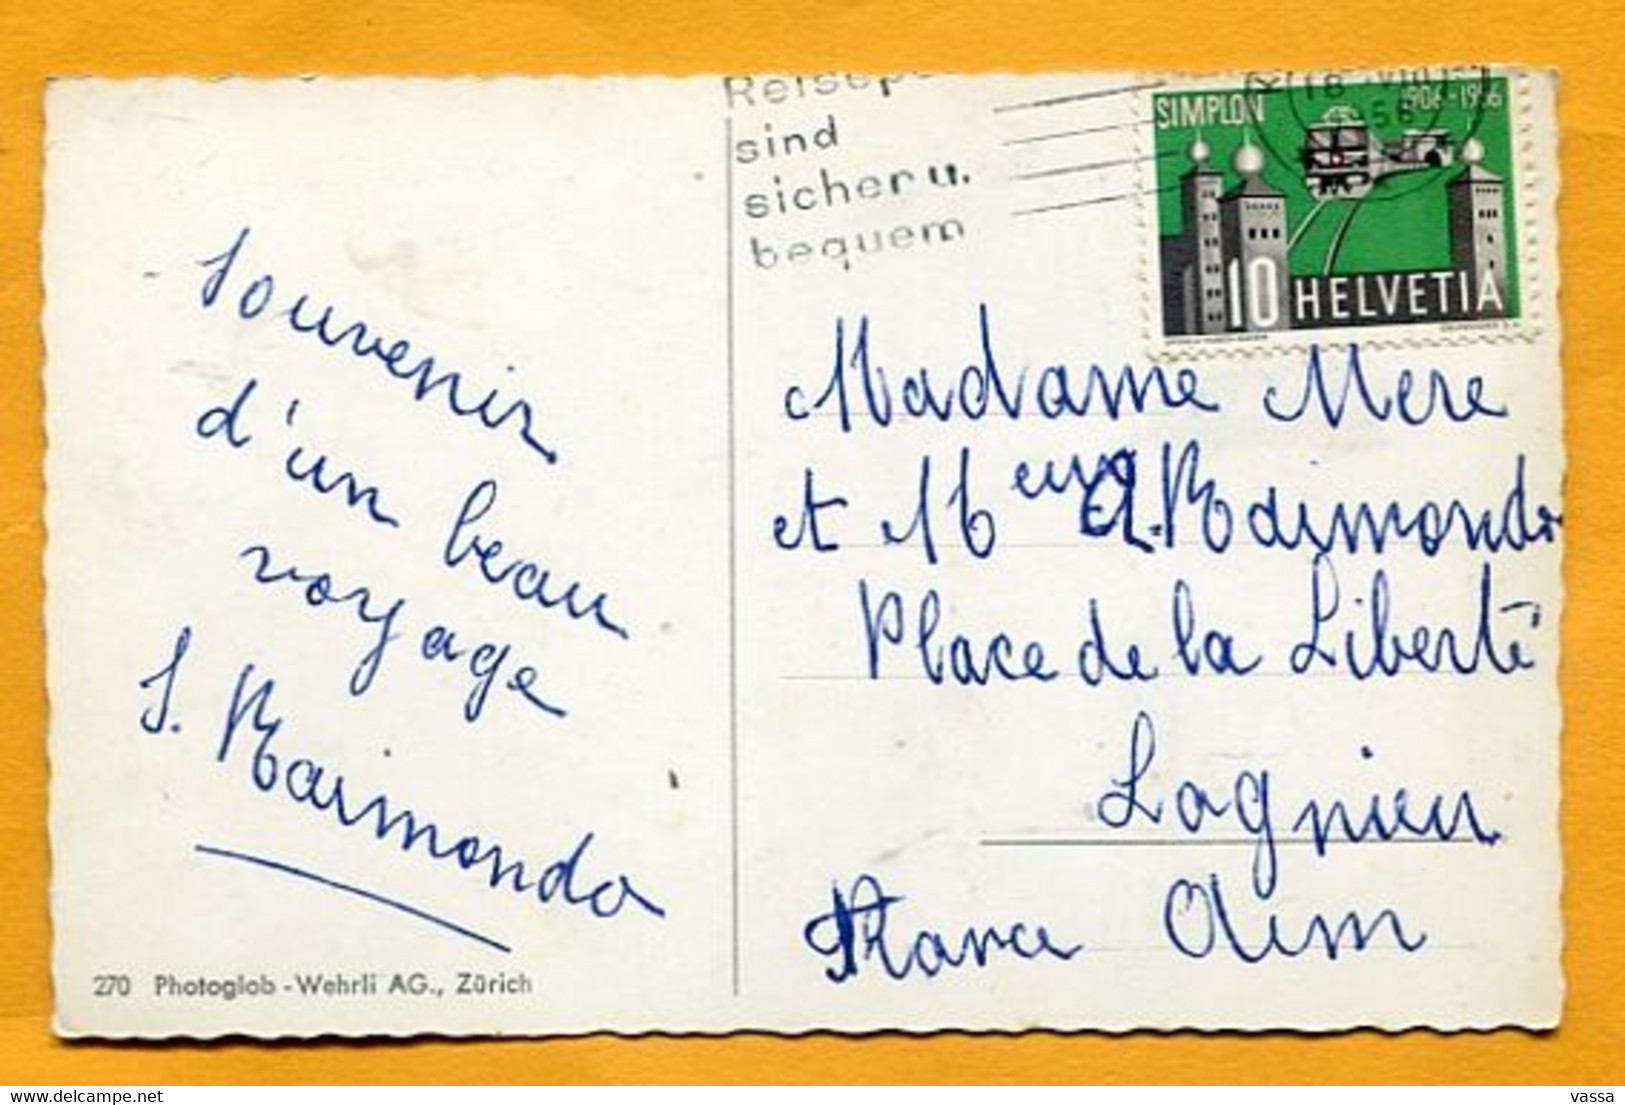 sind
sicher u.
bequem
SIMPLON 1906-1956
10 HELVETIA
Souvenir
d'un beau
voyage
S. Raimondo
Madame Mere
et Meur A. Raimondo
Place de la Liberté
Lagnieu
Ain
270 Photoglob - Wehrli AG., Zürich
delcampe.net
vassa